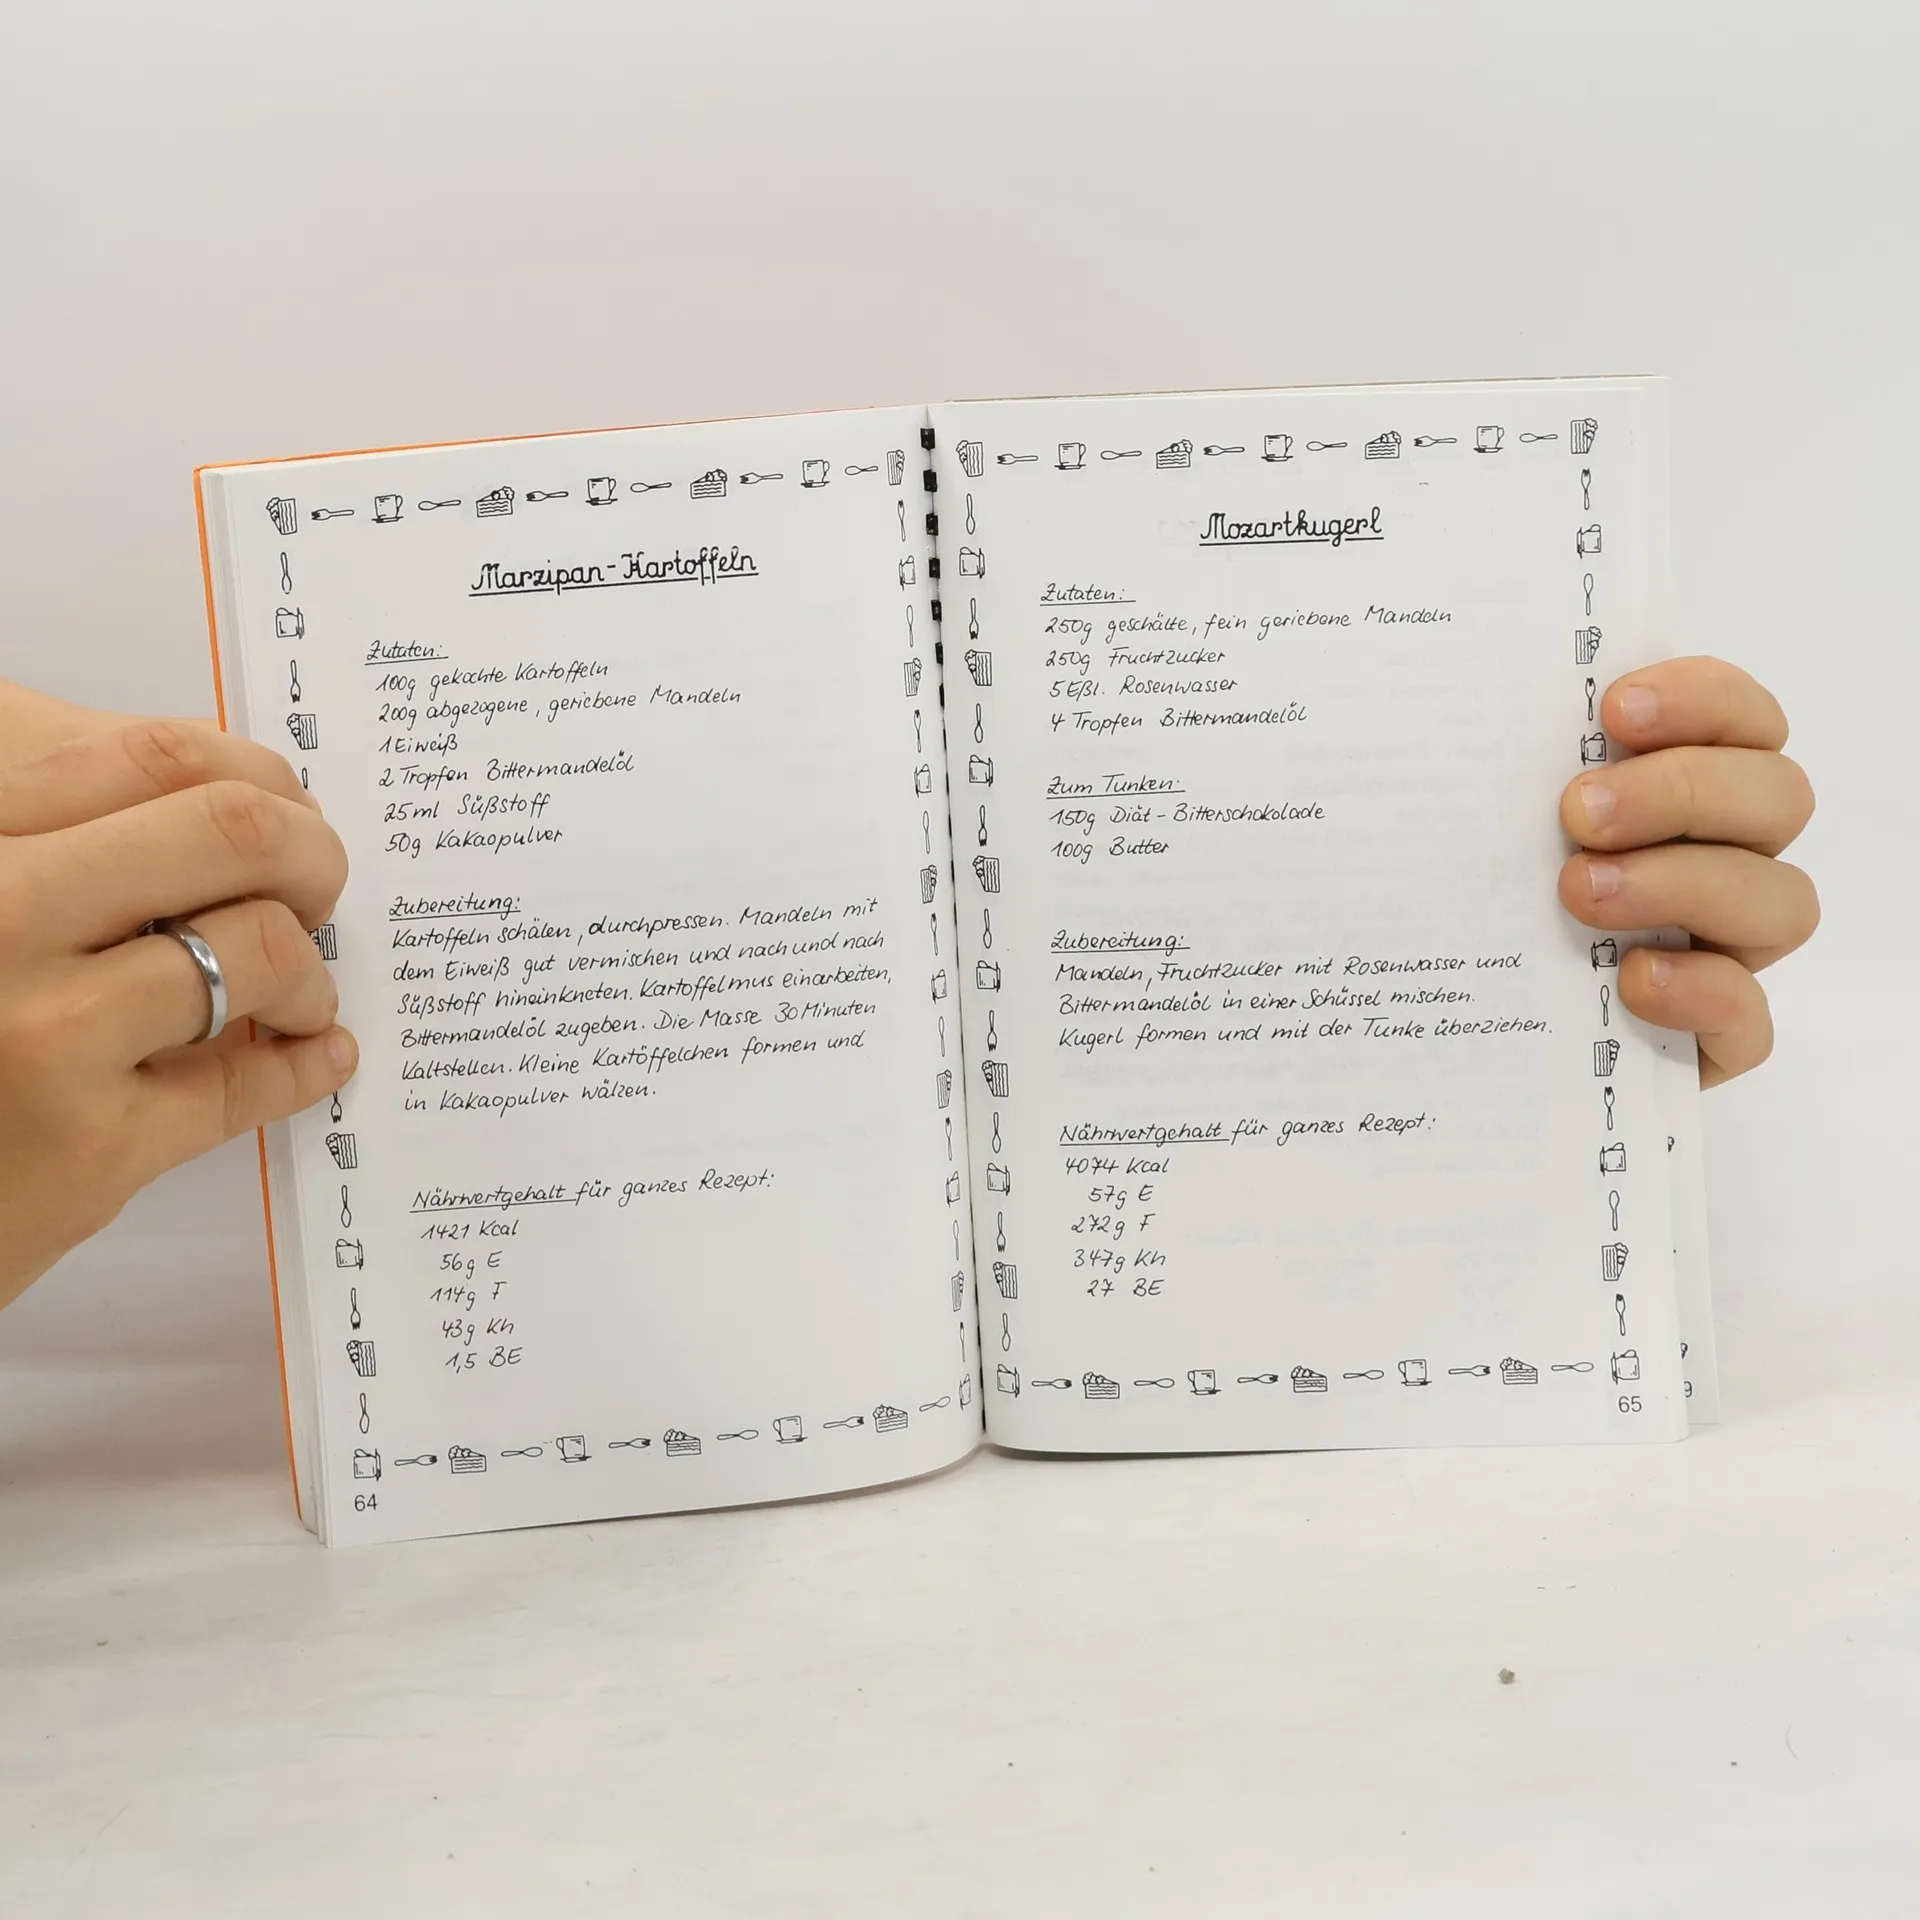 Marzipan-Kartoffeln
Zutaten:
100g gekochte Kartoffeln
200g abgezogene, geriebene Mandeln
1 Eiweiß
2 Tropfen Bittermandelöl
25ml Süßstoff
50g Kakaopulver
Zubereitung:
Kartoffeln schälen, durchpressen. Mandeln mit
dem Eiweiß gut vermischen und nach und nach
Süßstoff hineinkneten. Kartoffelmus einarbeiten,
Bittermandelöl zugeben. Die Masse 30 Minuten
Kaltstellen. Kleine Kartöffelchen formen und
in Kakaopulver wälzen.
Nährwertgehalt für ganzes Rezept:
1421 Kcal
56g E
114g F
43g Kh
1,5 BE
64
Mozartkugerl
Zutaten:
250g geschälte, fein geriebene Mandeln
250g Fruchtzucker
5 Eßl. Rosenwasser
4 Tropfen Bittermandelöl
Zum Tunken:
150g Diät-Bitterschokolade
100g Butter
Zubereitung:
Mandeln, Fruchtzucker mit Rosenwasser und
Bittermandelöl in einer Schüssel mischen.
Kugerl formen und mit der Tunke überziehen.
Nährwertgehalt für ganzes Rezept:
4074 Kcal
57g E
272g F
347g Kh
27 BE
65
9